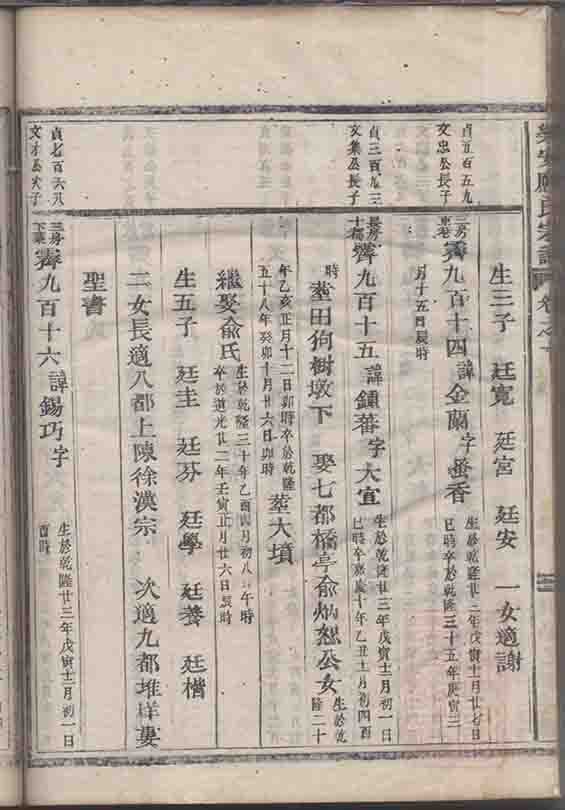 生三子　廷寬　廷宮　廷安　一女適謝
貞五百五九
文忠公長子
三房
東巷
霽九百十四諱金蘭字蚤香
生於乾隆廿二年戊寅十一月廿七日
巳時卒於乾隆三十五年庚寅三
月十五日辰時
貞三百八三
文集公長子
長房
十都
霽九百十五諱鏽蕃字大宜
生於乾隆廿三年戊寅十二月初一日
巳時卒嘉慶十年乙丑十月初四酉
時
塟田狗樹墩下　娶七都橋亭俞炳恕公女
生於乾
隆二十
年乙亥正月十二日卯時卒於乾隆
五十八年癸卯十月廿六日卯時
塟大墳
繼娶俞氏
生於乾隆三十年乙酉四月初八日午時
卒於道光廿二年壬寅正月廿六日辰時
生五子　廷圭　廷芬　廷學　廷養　廷楷
二女長適八都上陳徐漢宗　次適九都堆样婁
聖書
貞七百六八
文才公次子
三房
下葉
霽九百十六諱錫巧字
生於乾隆廿三年戊寅十二月初一日
酉時